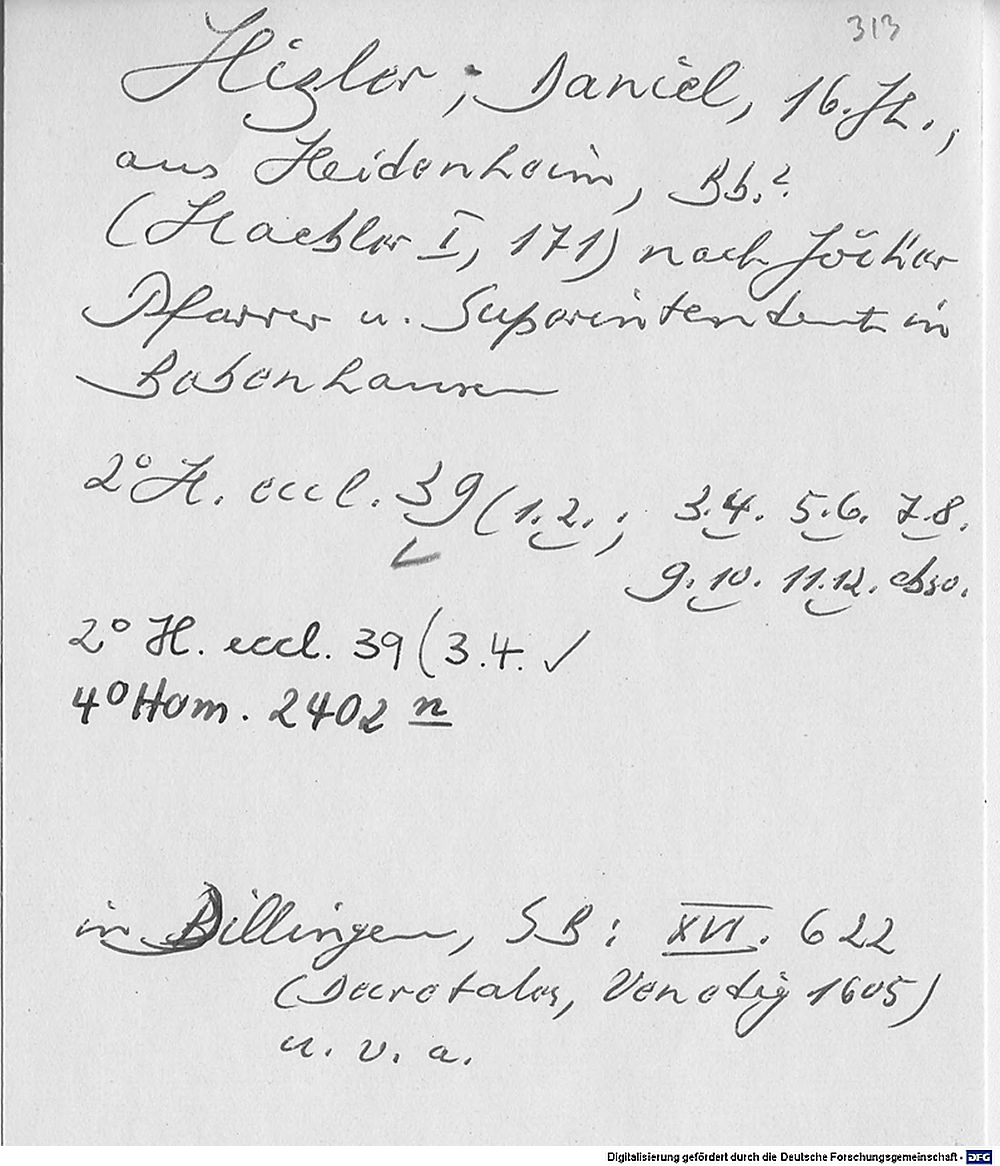 313
Hizler, Daniel, 16. Jh.,
aus Heidenheim, Bb.?
(Haebler I, 171) nach Jöcher
Pfarrer u. Superintendent in
Babenhausen
2° H. eccl. 39 (1.2.; 3.4. 5.6. 7.8.
9.10. 11.12. ebso.
2° H. eccl. 39 (3.4. ✓
4° Hom. 2402 n
in Dillingen, SB: XVI. 622
(Decretales, Venedig 1605)
u. v. a.
Digitalisierung gefördert durch die Deutsche Forschungsgemeinschaft - DFG